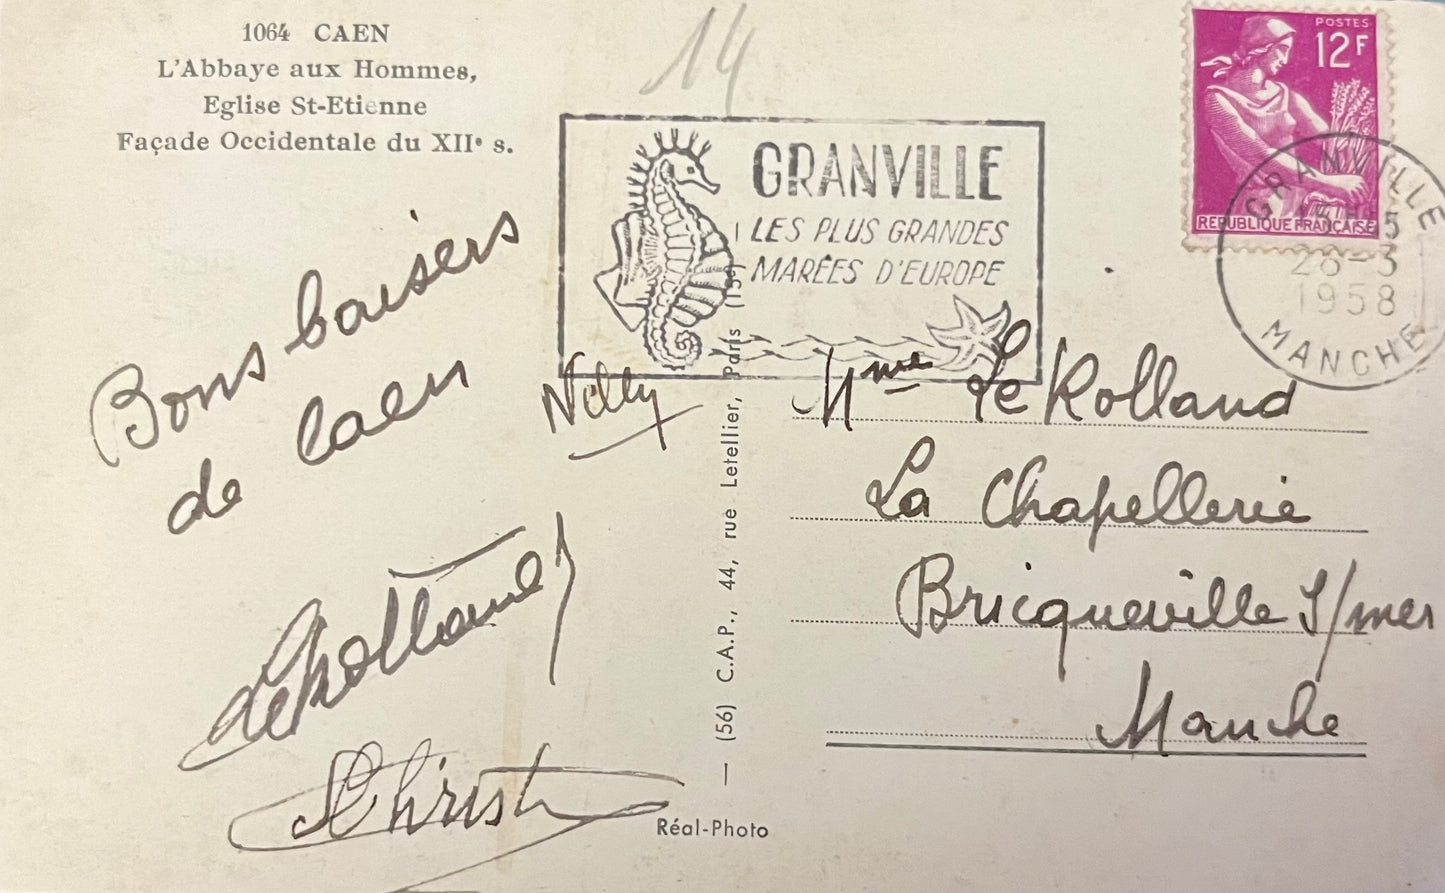 1064 CAEN
L'Abbaye aux Hommes,
Eglise St-Etienne
Façade Occidentale du XIIe s.
14
GRANVILLE
LES PLUS GRANDES
MARÉES D'EUROPE
POSTES
12F
REPUBLIQUE FRANÇAISE
GRANVILLE
28-3
1958
MANCHE
Bons baisers
de Caen
LeRolland
Christ
(56) C.A.P., 44, rue Letellier, Paris (15e)
Réal-Photo
Mme Le Rolland
La Chapellerie
Bricqueville S/mer
Manche